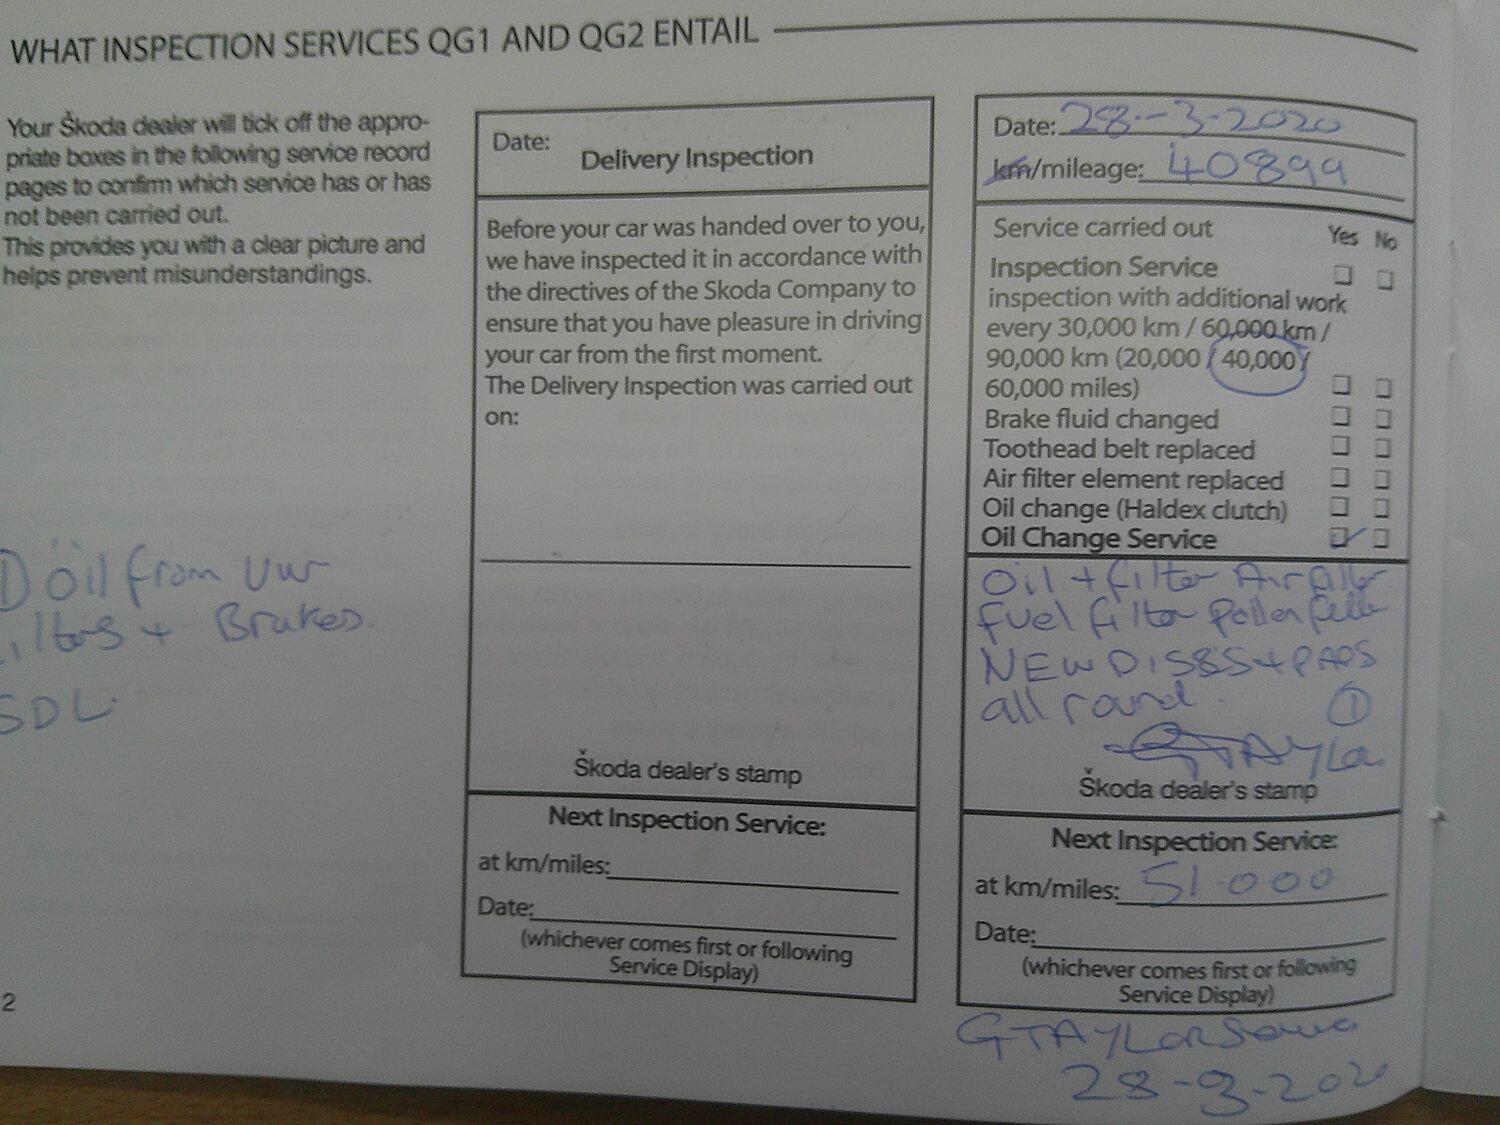 WHAT INSPECTION SERVICES QG1 AND QG2 ENTAIL
Your Škoda dealer will tick off the appro-
priate boxes in the following service record
pages to confirm which service has or has
not been carried out.
This provides you with a clear picture and
helps prevent misunderstandings.
① Oil from VW
+ Brakes.
SDL.
2
Date:
Delivery Inspection
Before your car was handed over to you,
we have inspected it in accordance with
the directives of the Skoda Company to
ensure that you have pleasure in driving
your car from the first moment.
The Delivery Inspection was carried out
on:
Škoda dealer's stamp
Next Inspection Service:
at km/miles:
Date:
(whichever comes first or following
Service Display)
Date: 28-3-2020
km/mileage: 40899
Service carried out Yes No
Inspection Service
inspection with additional work
every 30,000 km / 60,000 km /
90,000 km (20,000 / 40,000 /
60,000 miles)
Brake fluid changed
Toothead belt replaced
Air filter element replaced
Oil change (Haldex clutch)
Oil Change Service
Oil + filter Air filter
Fuel filter Pollen filter
NEW DISKS + PADS
all round. ①
GTAYLOR
Škoda dealer's stamp
Next Inspection Service:
at km/miles: 51.000
Date:
(whichever comes first or following
Service Display)
GTAYLOR
28-3-2020